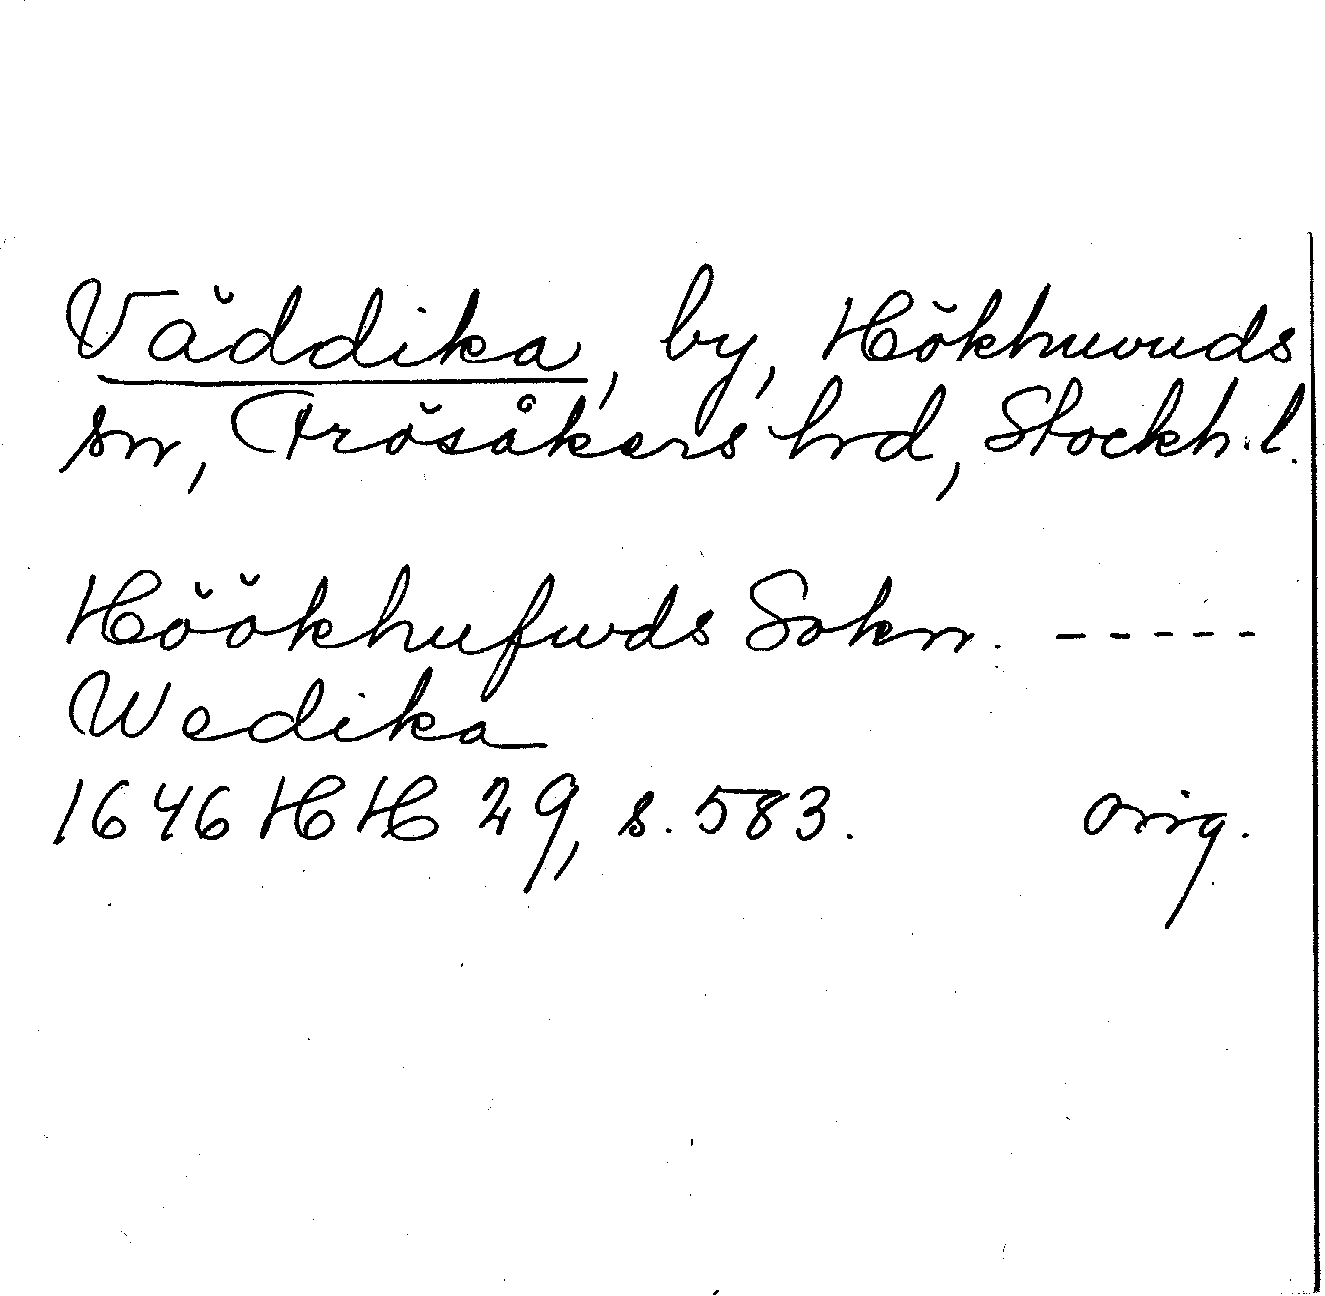 Väddika, by, Hökhuvuds
sn, Frösåkers hd, Stockh. l.
Höökhufwds Sokn. -----
Wedika
1646 HH 29, s. 583. Orig.